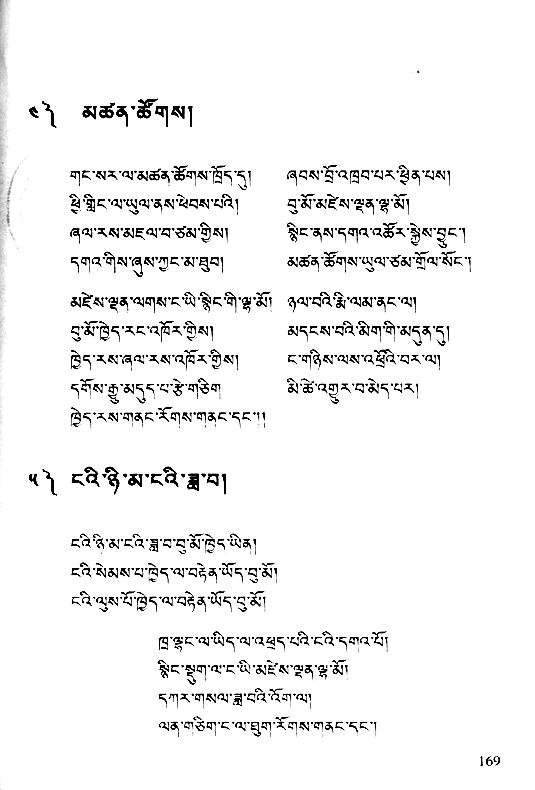 ༤༽ མཚན་ཚོགས།
གང་སར་ལ་མཚན་ཚོགས་ཁྲོད་དུ།
ཞབས་བྲོ་འཁྲབ་པར་ཕྱིན་པས།
ཕྱི་གླིང་ལ་ཡུལ་ནས་ཕེབས་པའི།
བུ་མོ་མཛེས་ལྡན་ལྷ་མོ།
ཞལ་རས་མཇལ་བ་ཙམ་གྱིས།
སྙིང་ནས་དགའ་འཚོར་སྐྱེས་བྱུང་།
དགའ་གིས་ཞུས་ཀྱང་མ་ཐུབ།
མཚན་ཚོགས་ཡུལ་ཙམ་གྲོལ་སོང་།
མཛེས་ལྡན་ལགས་ང་ཡི་སྙིང་གི་ལྷ་མོ།
ཉལ་བའི་རྨི་ལམ་ནང་ལ།
བུ་མོ་ཁྱེད་རང་འཁོར་གྱིས།
མདངས་བའི་མིག་གི་མདུན་དུ།
ཁྱེད་རས་ཞལ་རས་འཁོར་གྱིས།
ང་གཉིས་ལས་འཕྲོའི་བར་ལ།
དགོས་རྒྱུ་མདུད་པ་རྩེ་གཅིག
མི་ཚེ་འགྱུར་བ་མེད་པར།
ཁྱེད་རས་གནང་རོགས་གནང་དང་།།
༥༽ ངའི་ཉི་མ་ངའི་ཟླ་བ།
ངའི་ཉི་མ་ངའི་ཟླ་བ་བུ་མོ་ཁྱེད་ཡིན།
ངའི་སེམས་པ་ཁྱེད་ལ་བརྟེན་ཡོད་བུ་མོ།
ངའི་ལུས་པོ་ཁྱེད་ལ་བརྟེན་ཡོད་བུ་མོ།
ཁྲ་ལྷང་ལ་ཡིད་ལ་འཕྲད་པའི་ངའི་དགའ་པོ།
སྙིང་སྡུག་ལ་ང་ཡི་མཛེས་ལྡན་ལྷ་མོ།
དཀར་གསལ་ཟླ་བའི་འོག་ལ།
ལན་གཅིག་ང་ལ་ཐུག་རོགས་གནང་དང་།
169